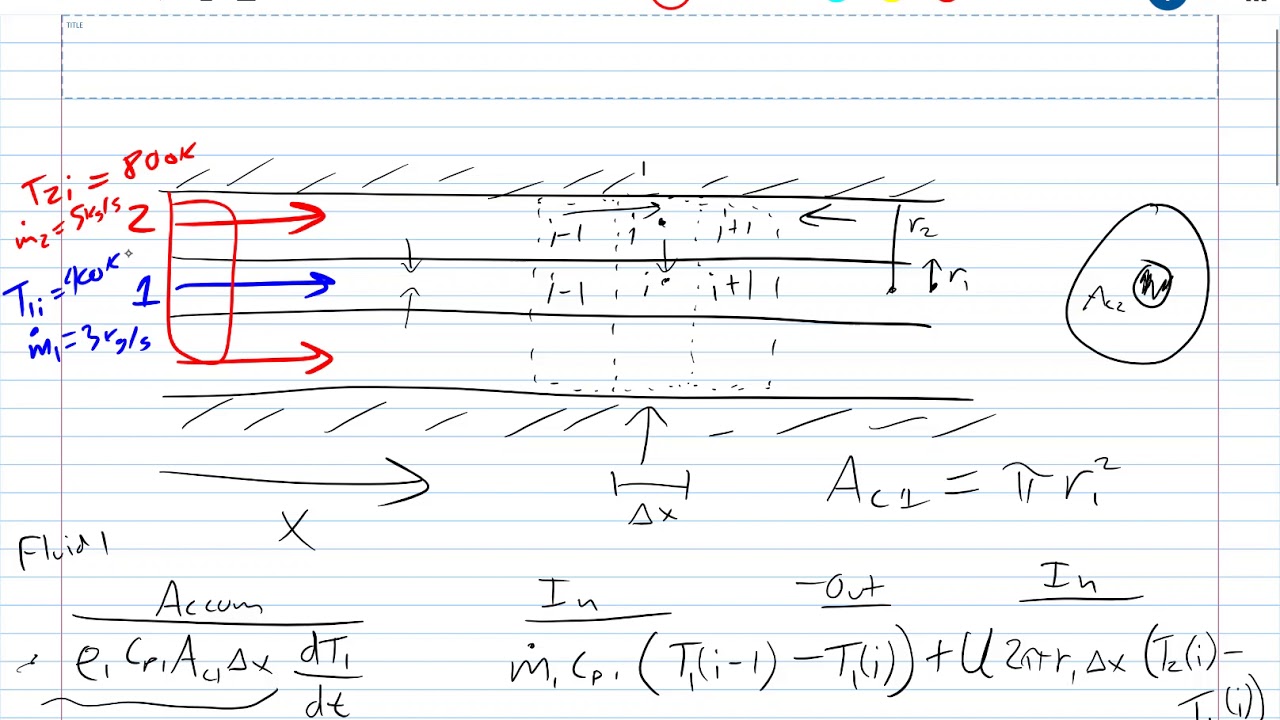 TITLE
T2i = 800K
ṁ2 = 5kg/s
2
T1i = 400K
1
ṁ1 = 3kg/s
i-1 i i+1
i-1 i i+1
r2
r1
Ac2
Δx
X
Ac1 = πr1²
Fluid 1
Accum In -Out In
ρ1 Cp1 Ac1 Δx dT1/dt ṁ1 Cp1 (T1(i-1) - T1(i)) + U 2πr1 Δx (T2(i) -
T1(i))